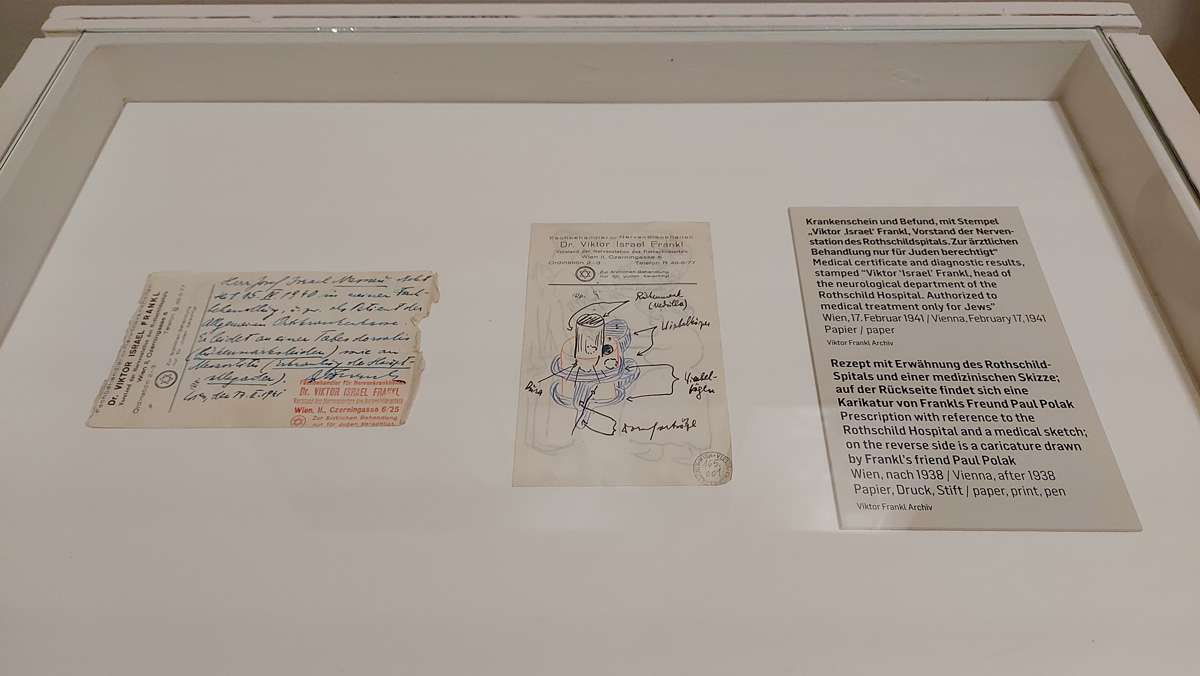 Fachbehandler für Nervenkrankheiten
Dr. VIKTOR ISRAEL FRANKL
Vorstand der Nervenstation des Rothschildspitals
Wien II, Czerningasse 6
Ordination 2–3
Zur ärztlichen Behandlung
nur für Juden berechtigt
Herrn Josef Israel
15. 1940 in meiner Fach-
behandlung,
allgemeinen
leidet an einer Tabes dorsalis
(Rückenmarksleiden) sowie an
Fachbehandler für Nervenkrankheiten
Dr. VIKTOR ISRAEL FRANKL
Vorstand der Nervenstation des Rothschildspitals
Wien, II., Czerningasse 6/25
Zur Ärztlichen Behandlung
nur für Juden berechtigt.
Fachbehandler für Nervenkrankheiten
Dr. Viktor Israel Frankl
Vorstand der Nervenstation des Rothschildspitals
Wien II, Czerningasse 6
Ordination 2–3 Telefon R 46-6-77
Zur ärztlichen Behandlung
nur für Juden berechtigt
Rückenmark
(Medulla)
Wirbelkörper
Wirbel-
bögen
Dornfortsätze
Krankenschein und Befund, mit Stempel
„Viktor ‚Israel' Frankl, Vorstand der Nerven-
station des Rothschildspitals. Zur ärztlichen
Behandlung nur für Juden berechtigt"
Medical certificate and diagnostic results,
stamped "Viktor 'Israel' Frankl, head of
the neurological department of the
Rothschild Hospital. Authorized to
medical treatment only for Jews"
Wien, 17. Februar 1941 / Vienna, February 17, 1941
Papier / paper
Viktor Frankl Archiv
Rezept mit Erwähnung des Rothschild-
Spitals und einer medizinischen Skizze;
auf der Rückseite findet sich eine
Karikatur von Frankls Freund Paul Polak
Prescription with reference to the
Rothschild Hospital and a medical sketch;
on the reverse side is a caricature drawn
by Frankl's friend Paul Polak
Wien, nach 1938 / Vienna, after 1938
Papier, Druck, Stift / paper, print, pen
Viktor Frankl Archiv